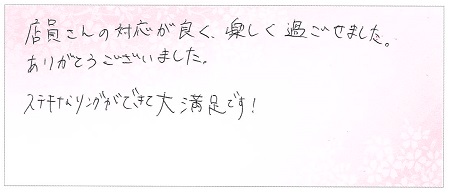 店員さんの対応が良く、楽しく過ごせました。
ありがとうございました。
ステキなリングができて大満足です！